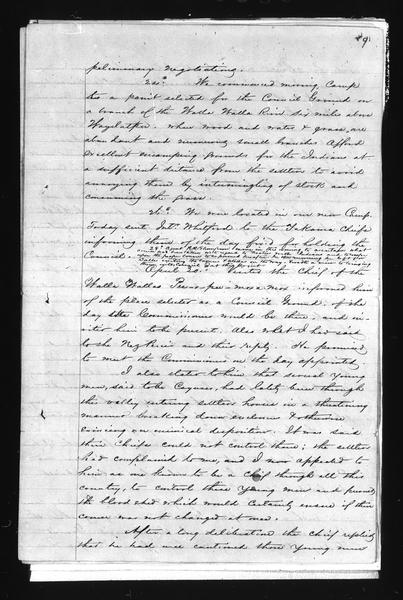 9
preliminary negotiating.
24th. We commenced moving Camp
to a point selected for the Council Ground on
a branch of the Walla Walla River six miles above
where wood and water & grass, are
abundant and numerous small branches afford
excellent encamping grounds for the Indians at
a sufficient distance from the settlers to avoid
annoying them by intermingling of stock and
consuming the grass.
26th. We are now located in our new Camp.
Today sent Whitford to the Yakama Chiefs
informing them of the day fixed for holding the
Council.
April 28 Visited the Chief of the
Walla Wallas informed him
of the place selected as a Council Ground, of the
day the Commissioners would be there, and in-
vited him to be present. Also what I had said
to the Nez Perces and their reply. He promised
to meet the Commissioners on the day appointed
I also stated to him that several young
men, said to be Cayuses, had lately been through
this valley entering settlers houses in a threatening
manner breaking down enclosures & otherwise
evincing an inimical disposition. It was said
their chiefs could not control them; the settlers
had complained to me, and I now appealed to
him as one known to be a chief through all this
country, to control these young men and prevent
the blood shed which would certainly ensue if their
course was not changed at once.
After a long deliberation the chief replied
that he had once cautioned those young men